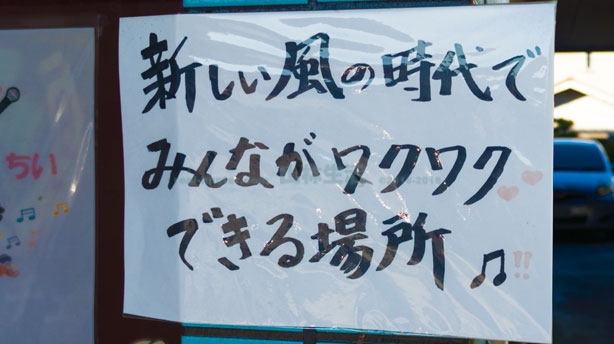 ちい
新しい風の時代で
みんながワクワク
できる場所♫!!